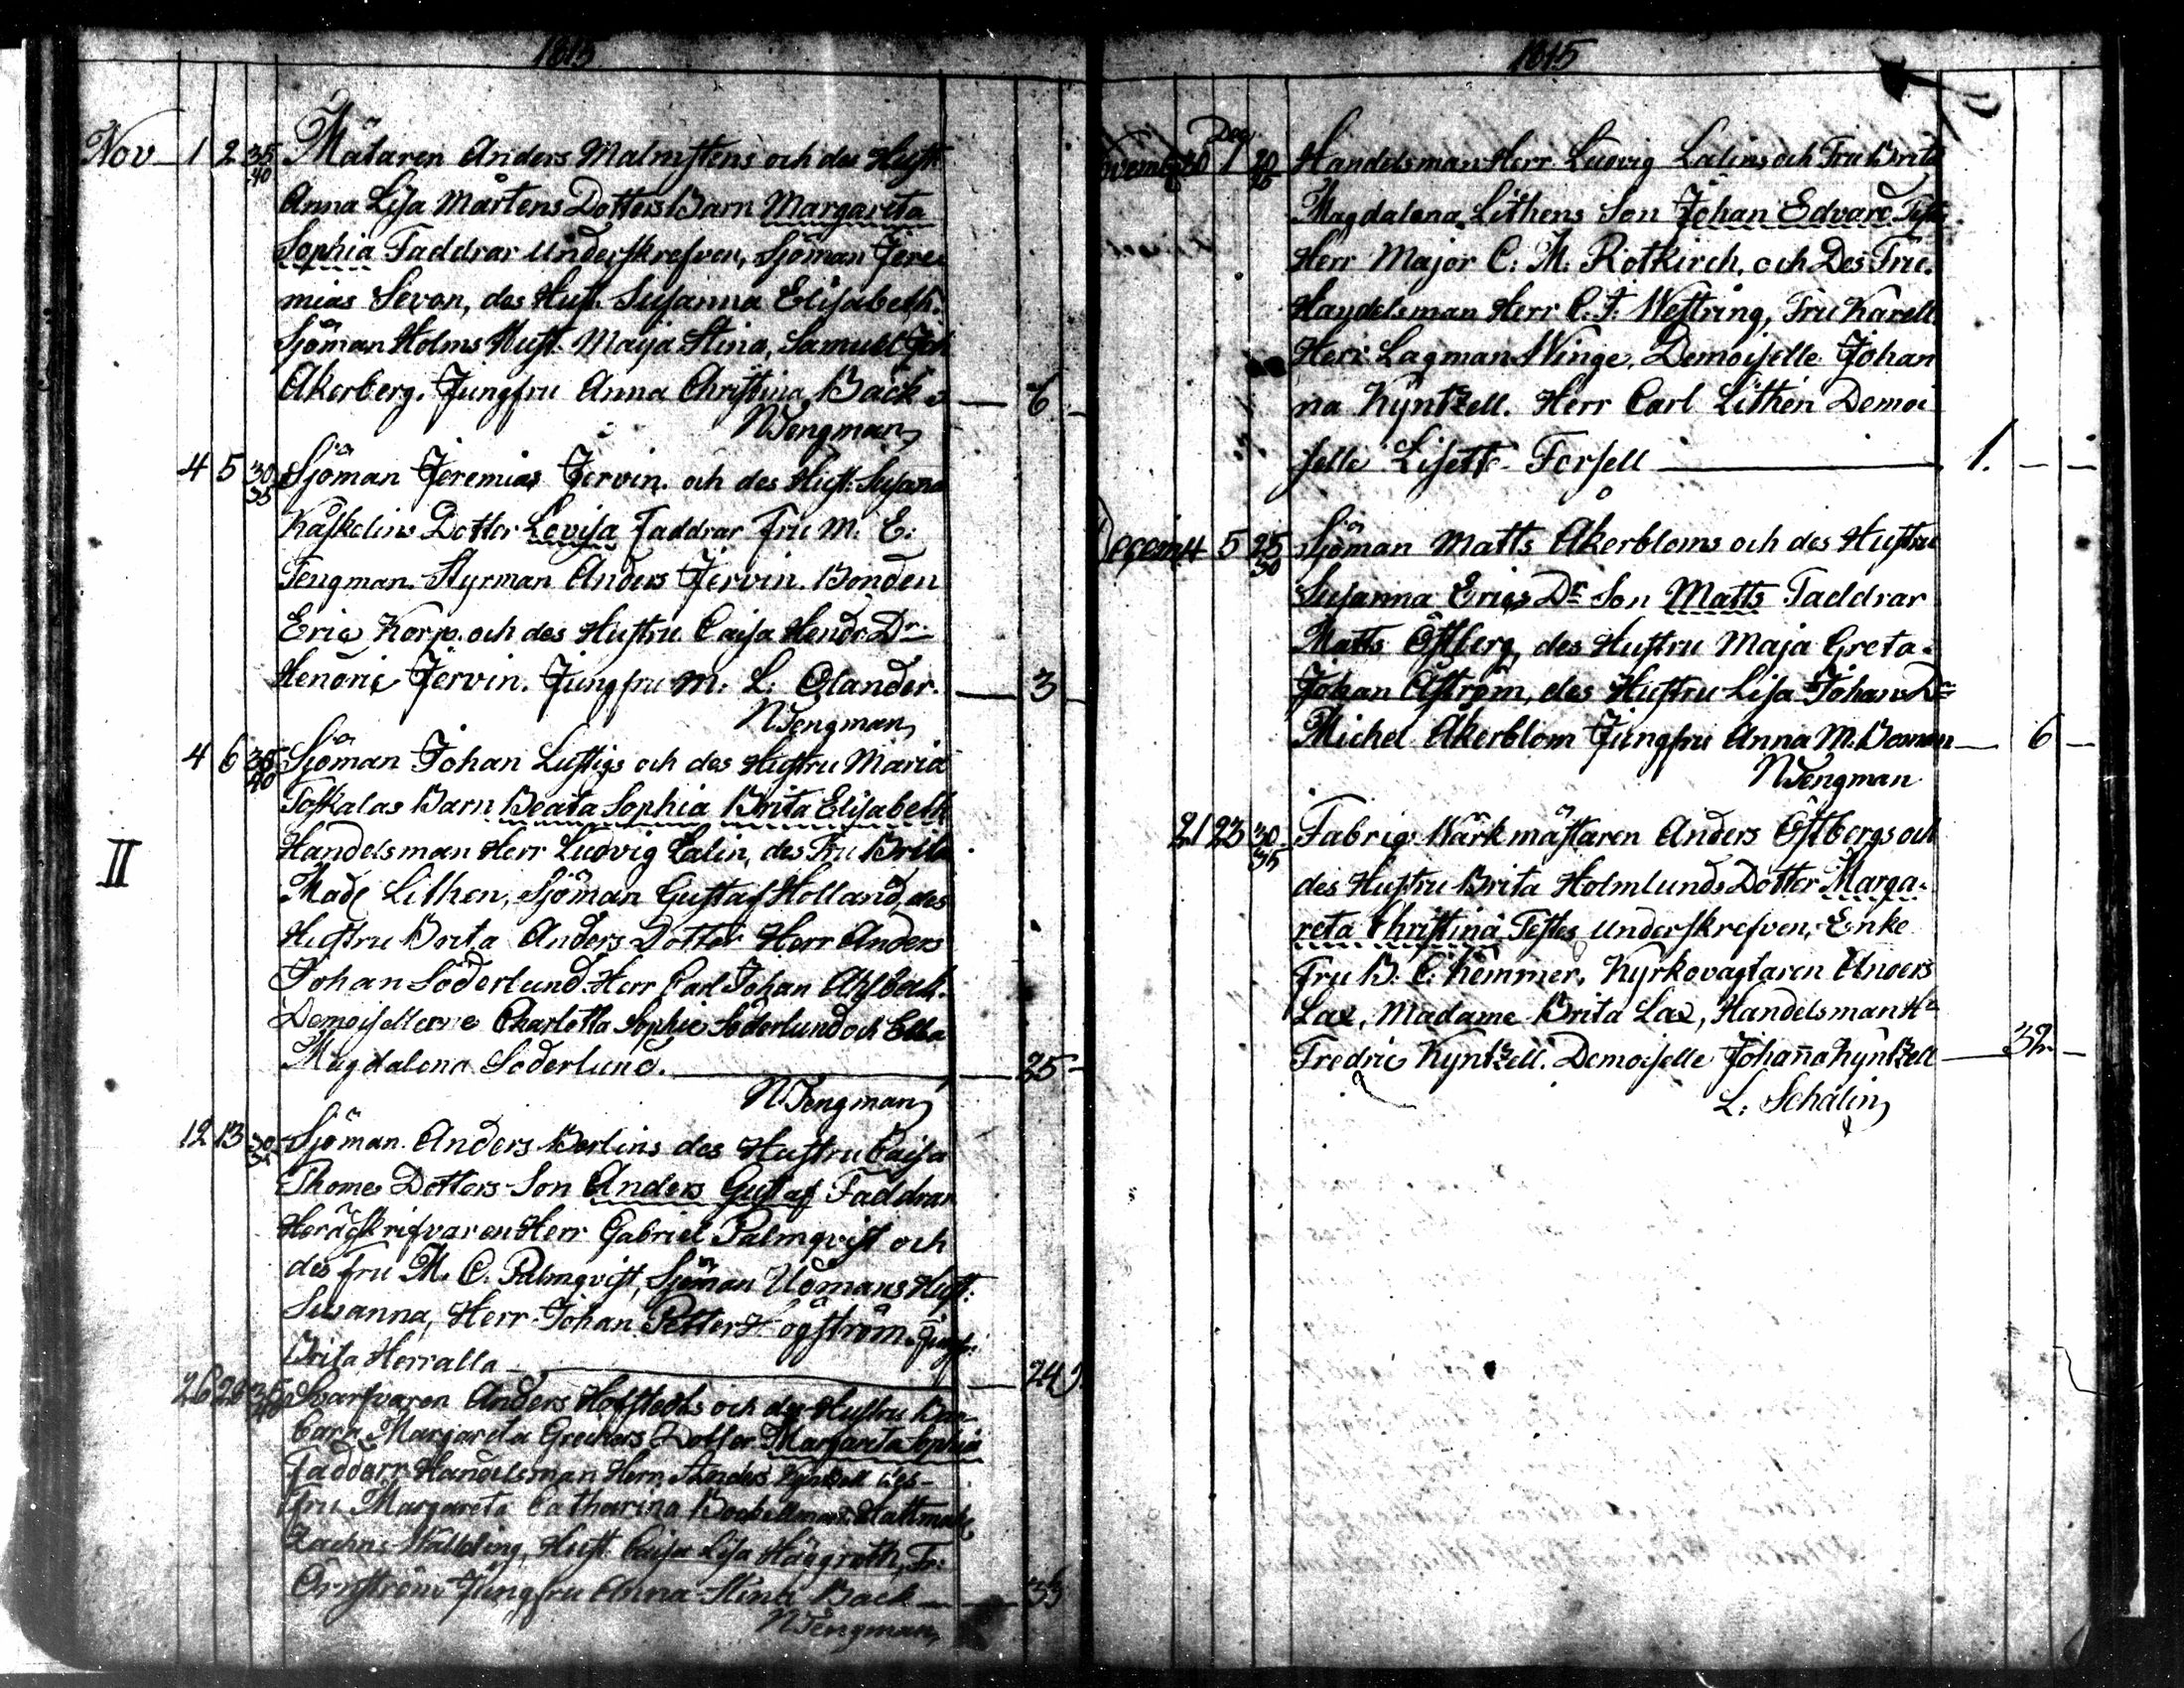 1815
Nov 1 2 35 40 Målaren Anders Malmstens och des Hust.
Anna Lisa Mårtens Dotters Barn Margareta
Sophia Faddrar Underskrefven, Sjöman Jere
mias Sevon, des Hust. Susanna Elisabeth.
Sjöman Holms Hust. Maija Stina, Samuel
Åkerberg. Jungfru Anna Christina Back 6
NTengman
4 5 30 35 Sjöman Jeremias Jervin. och des Hust: Susana
Kaskelins Dotter Lovisa Faddrar Fru M. E:
Tengman. Styrman Anders Jervin. Bonden
Eric Korp. och des Hustru Caisa Hendr Dr.
Hendric Jervin. Jungfru M: L: Olander. 3
NTengman
4 6 35 40 Sjöman Johan Lustigs och des Hustru Maria
Toskalas Barn Beata Sophia Brita Elisabeth
Handelsman Herr Ludvig Calin, des Fru Brita
Made Lithen, Sjöman Gustaf Holland, des
Hustru Brita Anders Dotter Herr Anders
Johan Söderlund. Herr Carl Johan Ahlbeck.
Demoisellerne Charlotta Sophie Söderlund och Ebba
Magdalena Söderlund. 25
NTengman
12 13 30 Sjöman Anders Berlins des Hustru Caisa
Thomes Dotters Son Anders Gustaf Faddrar
Herr Gabriel Palmqvist och
des fru M. C. Palmqvist, Sjöman Udmans Hust:
Susanna, Herr Johan Petter Högström. Jungf:
Brita Herralla 24
26 26 35 40 Svarfvaren Anders Hofstedts och des Hustru
Margareta Dotter Margareta Sophia
Handelsman Herr Anders Kyntzell des
Fru Margareta Catharina
Hust. Caisa Lisa Häggroth,
Jungfru Anna Stina Back 33
NTengman
II
1815
Dec.
30 1 Handelsman Herr Ludvig Calins och Fru Brita
Magdalena Lithens Son Johan Edvard. Testes
Herr Major C: M: Rotkirch, och Des Fru.
Handelsman Herr C. F. Westring, Fru Karell
Herr Lagman Winge, Demoiselle Johan
na Kyntzell. Herr Carl Lithén Demoi
selle Lisette Forsell 1.
4 5 25 30 Sjöman Matts Åkerbloms och des Hustru
Susanna Erics Dr Son Matts Faddrar
Matts Östberg, des Hustru Maja Greta.
Johan Åström, des Hustru Lisa Johans Dr
Michel Åkerblom Jungfru Anna M. 6
NTengman
21 23 30 35 Fabriqs Wärkmästaren Anders Östbergs och
des Hustru Brita Holmlunds Dotter Marga-
reta Christina Testes Underskrefven, Enke
Fru B. C. Kemmer, Kyrkovagtaren Anders
Lax, Madame Brita Lax, Handelsman Hr
Fredric Kyntzell. Demoiselle Johanna Kyntzell 32
L: Schalin